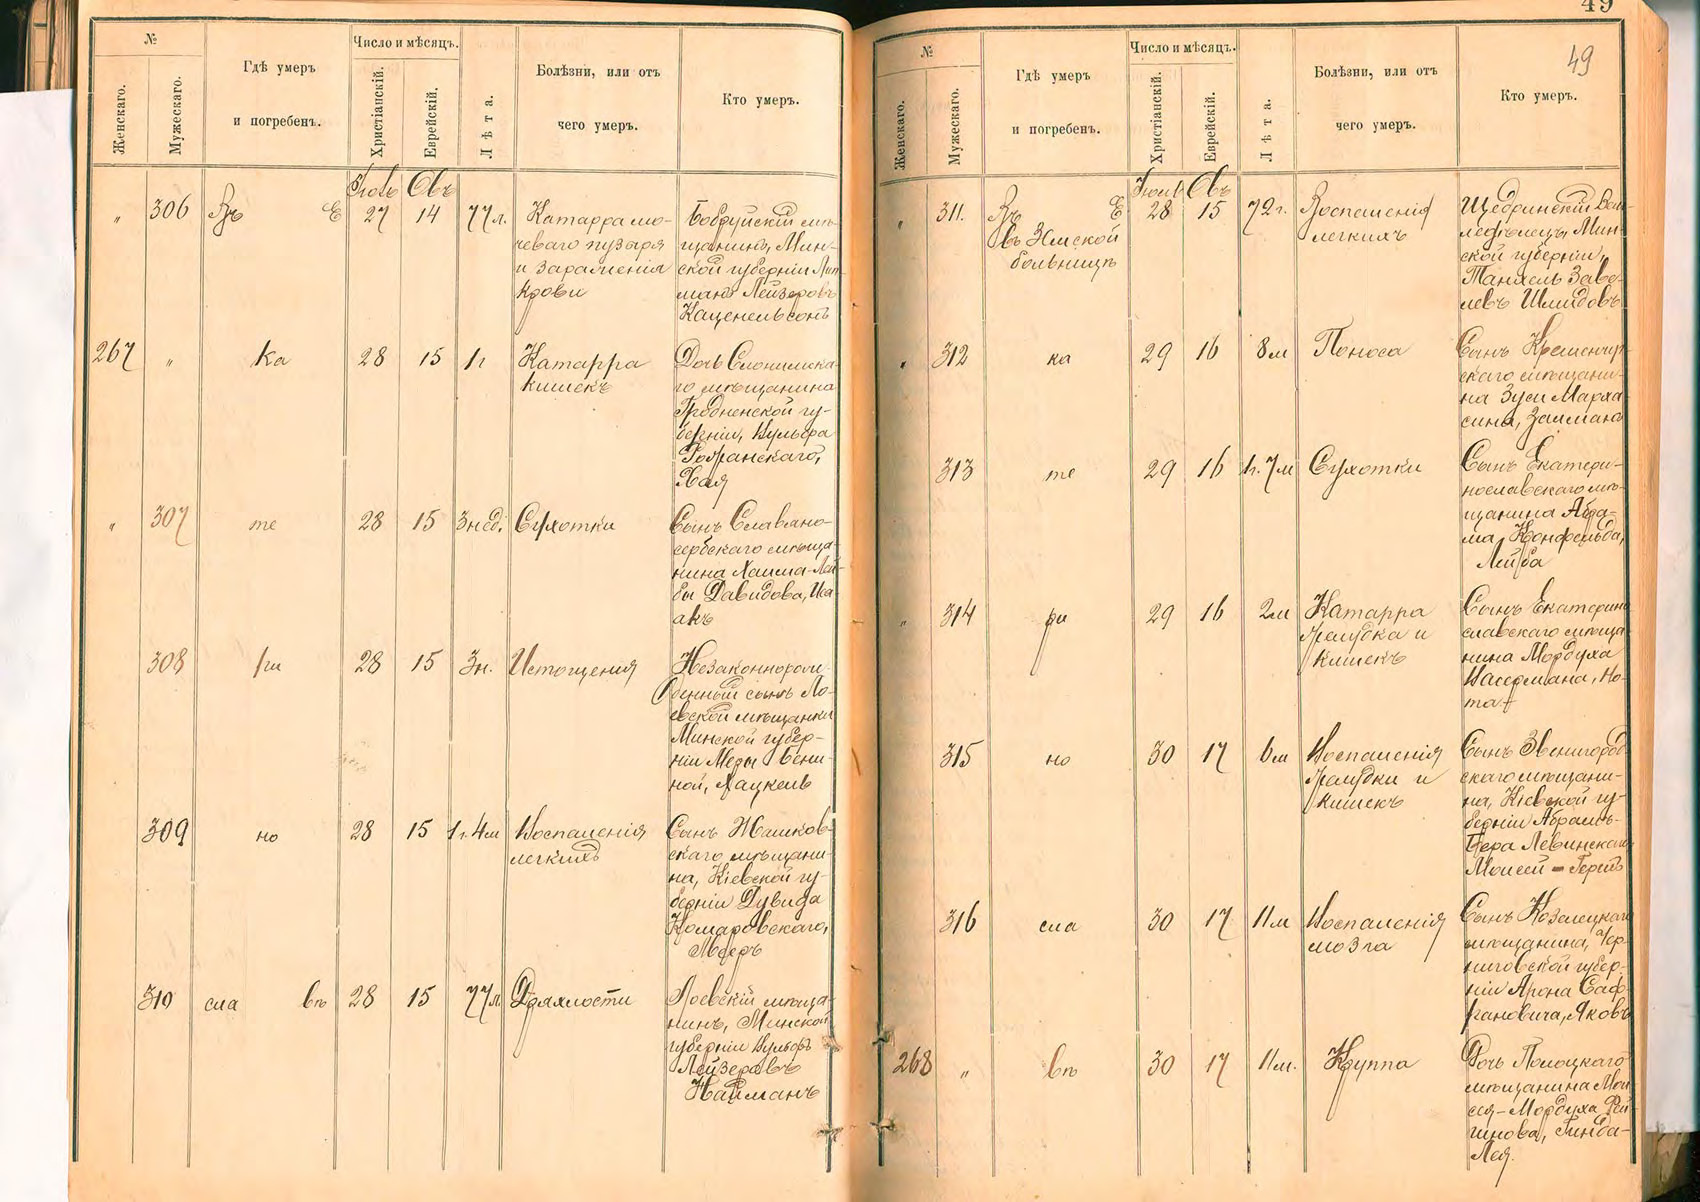 49
№
Женскаго.
Мужескаго.
Гдѣ умеръ
и погребенъ.
Число и мѣсяцъ.
Христіанскій.
Еврейскій.
Лѣта.
Болѣзни, или отъ
чего умеръ.
Кто умеръ.
Іюль Объ
„ 306 Въ Е 27 14 77 л. Катарра мо-
чеваго пузыря
и зараженія
крови
Бобруйскій мѣ-
щанинъ, Мин-
ской губерніи
Лейзеровъ
Каценельсонъ
267 „ ка 28 15 1 г Катарра
кишекъ
Дочь Слонимска-
го мѣщанина
Гродненской гу-
берніи, Вульфа
Хая
„ 307 те 28 15 3 нед. Сухотки
Сынъ Славяно-
сербскаго мѣща-
нина Хаима-Лей-
бы Давидова, Иса-
акъ
308 ри 28 15 3 н. Истощенія
Незаконнорож-
денный сынъ Ло-
евской мѣщанки
Минской губер-
ніи Меры
ной, Хацкель
309 но 28 15 1 г. 4 м Воспаленія
легкихъ
Сынъ Жашков-
скаго мѣщани-
на, Кіевской гу-
берніи Дувида
Комаровскаго,
310 сла въ 28 15 77 л. Дряхлости
Лоевскій мѣща-
нинъ, Минской
губерніи Вульфъ
Лейзеровъ
Найманъ
49
№
Женскаго.
Мужескаго.
Гдѣ умеръ
и погребенъ.
Число и мѣсяцъ.
Христіанскій.
Еврейскій.
Лѣта.
Болѣзни, или отъ
чего умеръ.
Кто умеръ.
Іюль Объ
„ 311. Въ Е 28 15 72 г. Воспаленія
въ Земской легкихъ
больницѣ
Щедринскій
Мин-
ской губерніи,
Танхель
Шмидовъ
„ 312 ка 29 16 8 м Поноса
Сынъ Кременчуг-
скаго мѣщани-
на Зуси Марха-
сина, Залмана
313 те 29 16 1 г. 7 м Сухотки
Сынъ Екатери-
нославскаго мѣ-
щанина Абра-
ма Конфельда,
Лейба
„ 314 ри 29 16 2 м Катарра
желудка и
кишекъ
Сынъ Екатерино
славскаго мѣща-
нина Мордуха
Васермана, Но-
та
315 но 30 17 6 м Воспаленія
желудка и
кишекъ
Сынъ Звенигород-
скаго мѣщани-
на, Кіевской гу-
берніи Абрамъ-
Бера Левинскаго
Моисей - Гершъ
316 сла 30 17 11 м Воспаленія
мозга
Сынъ Козелецкаго
мѣщанина, Чер-
ниговской губер-
ніи Арона
Яковъ
268 „ въ 30 17 11 м. Круппа
Дочь Полоцкаго
мѣщанина Мои-
сея-Мордуха Рей-
гинова, Гинда-
Лея.